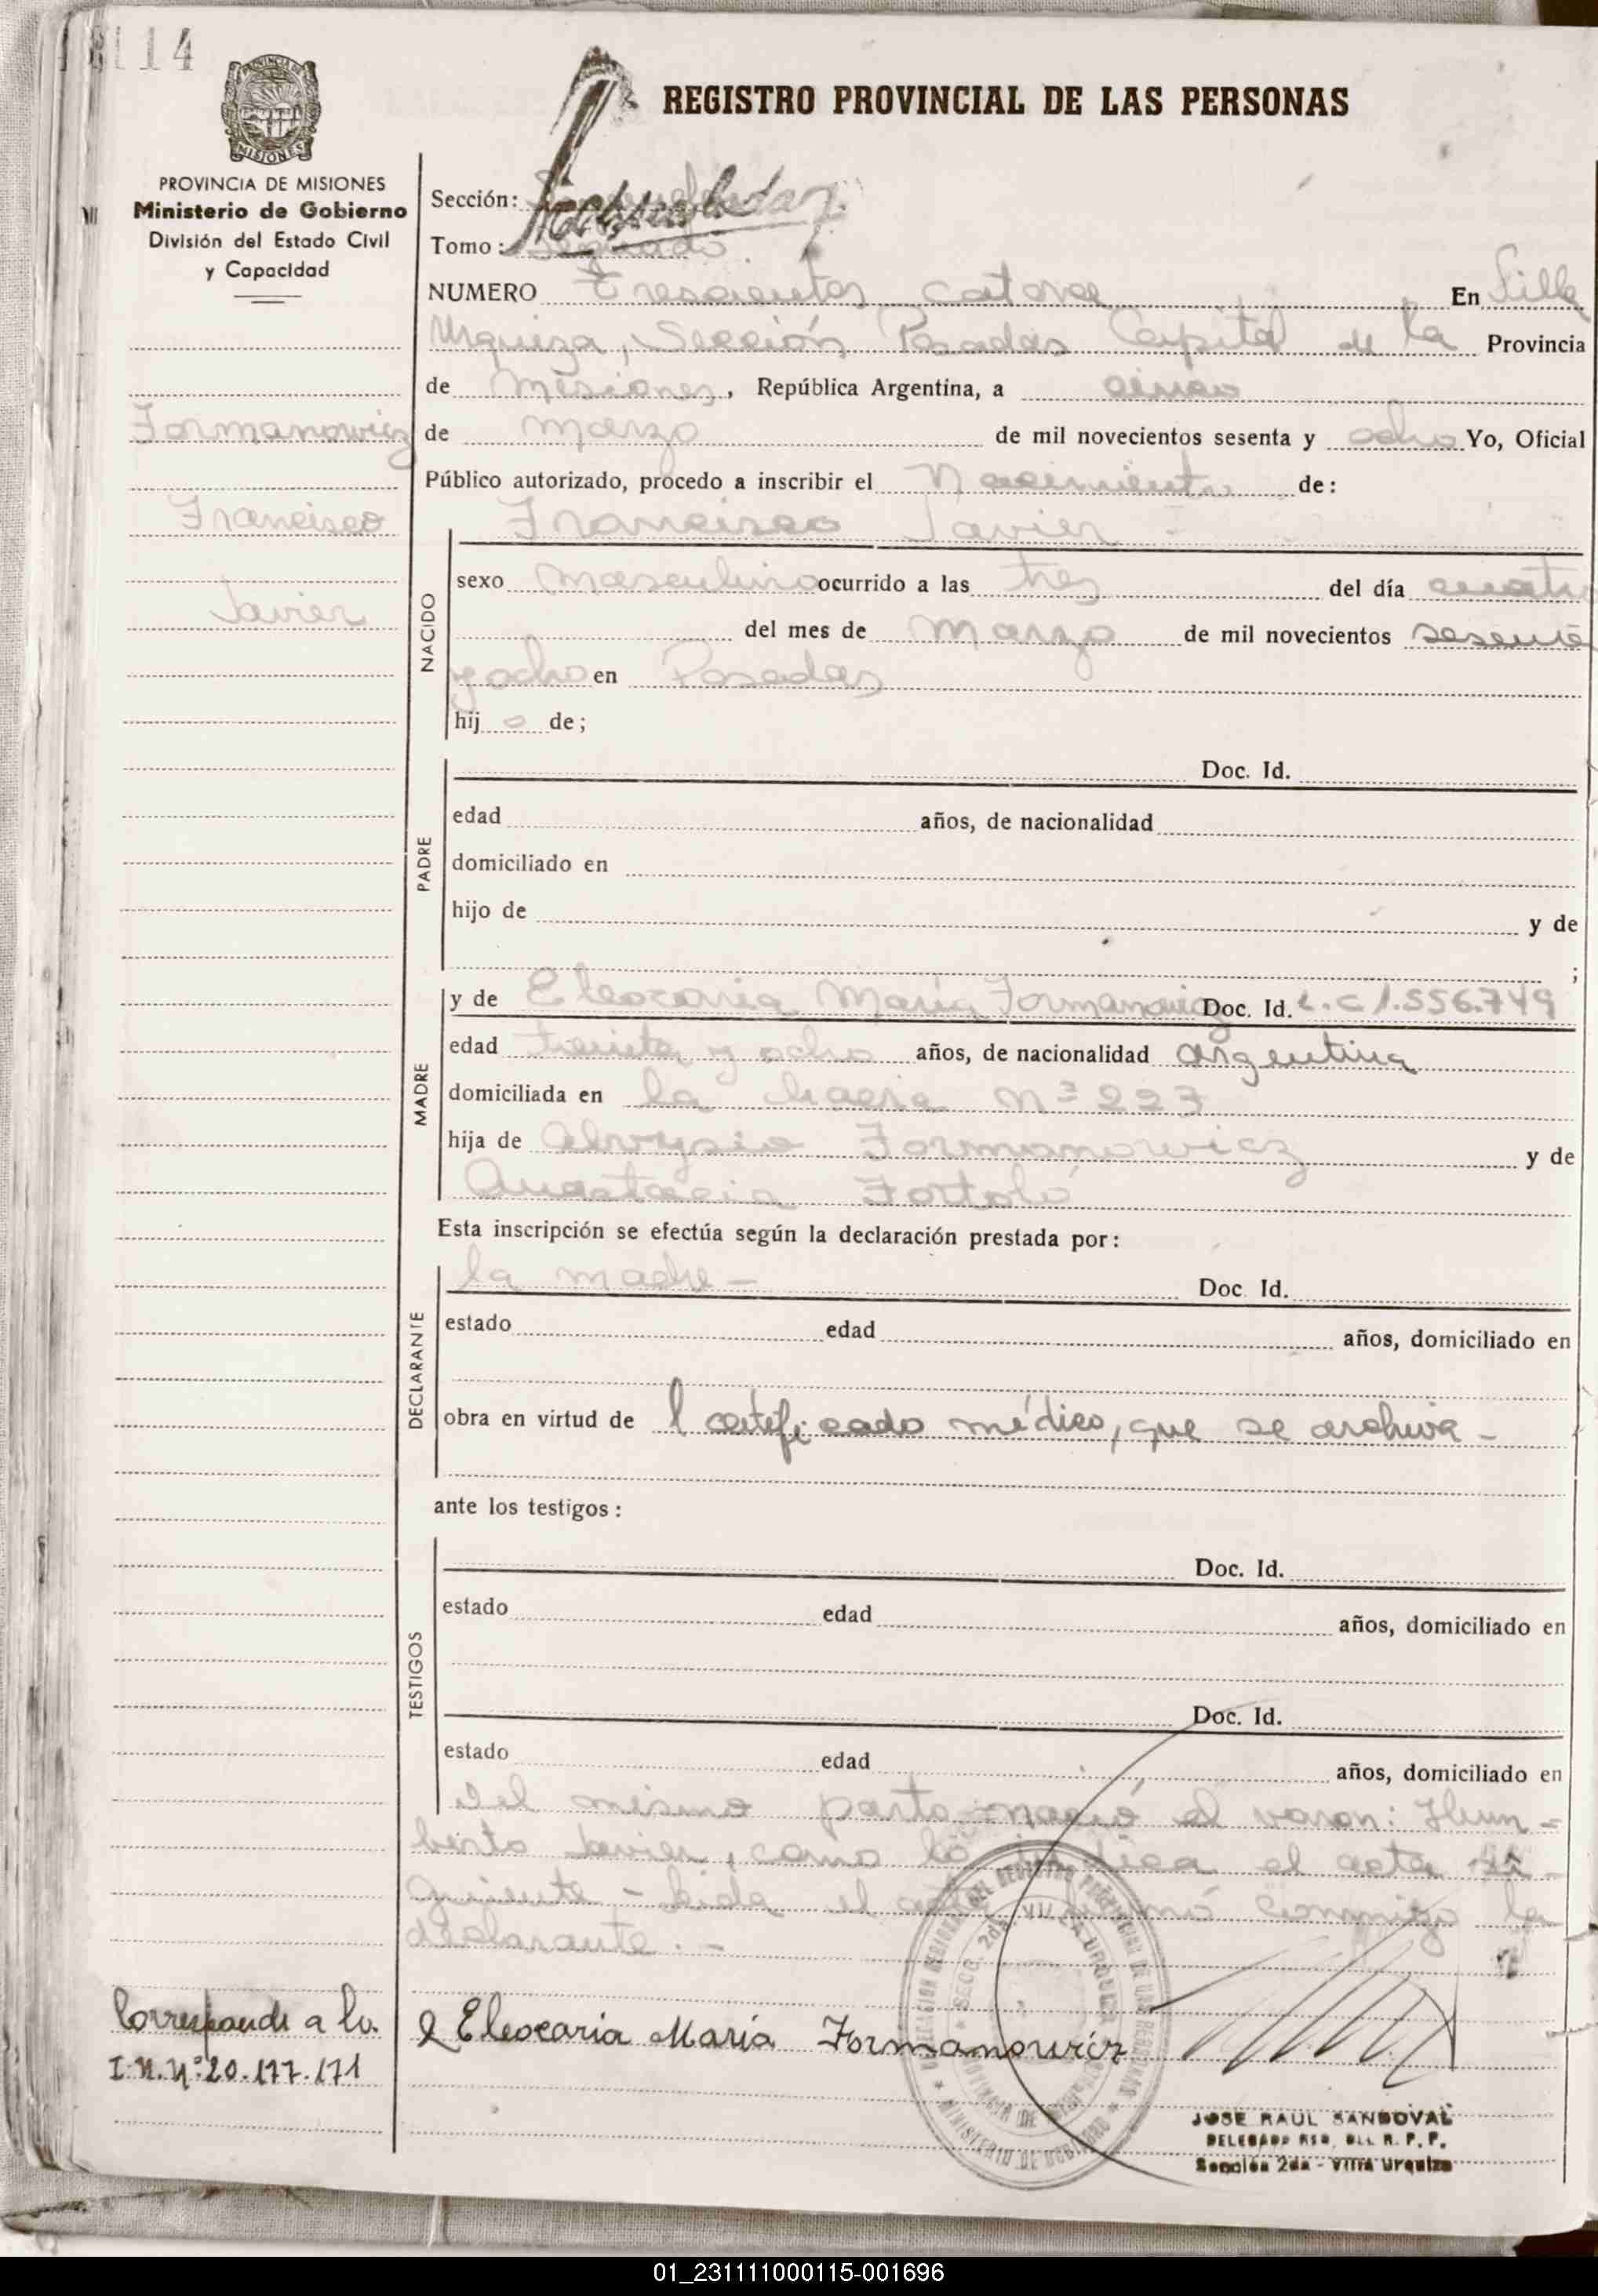 114
REGISTRO PROVINCIAL DE LAS PERSONAS
MISIONES
PROVINCIA DE MISIONES
Ministerio de Gobierno
División del Estado Civil
y Capacidad
Sección:
Tomo: Segundo
NUMERO Trescientos catorce En Villa
Urquiza, Sección Posadas Capital de la Provincia
de Misiones, República Argentina, a cinco
Formanowicz
de marzo de mil novecientos sesenta y ocho Yo, Oficial
Público autorizado, procedo a inscribir el Nacimiento de:
Francisco
Francisco Javier -
NACIDO
sexo masculino ocurrido a las tres del día cuatro
Javier
del mes de Marzo de mil novecientos sesenta
y ocho en Posadas
hij o de;
PADRE
Doc. Id.
edad años, de nacionalidad
domiciliado en
hijo de y de
;
MADRE
y de Eleocaria María Formanowicz Doc. Id. L.C 1.556.749
edad treinta y ocho años, de nacionalidad argentina
domiciliada en la chacra nº 227
hija de Formanowicz y de
Anastacia
Esta inscripción se efectúa según la declaración prestada por:
DECLARANTE
la madre - Doc. Id.
estado edad años, domiciliado en
obra en virtud de l certificado médico, que se archiva -
ante los testigos:
TESTIGOS
Doc. Id.
estado edad años, domiciliado en
Doc. Id.
estado edad años, domiciliado en
del mismo parto nació el varon: Hum-
berto Javier, como lo indica el acta si-
guiente - Leida el acta firmó conmigo la
declarante. -
Corresponde a la
I.N. Nº: 20.177.171
Eleocaria María Formanowicz
SECC. 2da VILLA URQUIZA
MINISTERIO DE GOBIERNO
JOSE RAUL SANDOVAL
DELEGADO REG. DEL R. P. P.
Sección 2da - Villa Urquiza
01_231111000115-001696